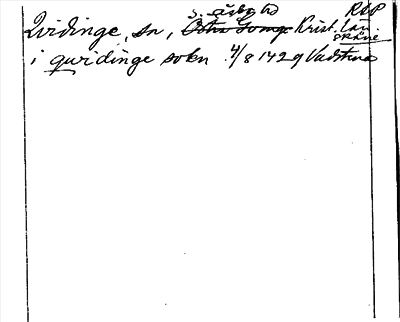 RAP
S. Åsbo hd
Qvidinge, sn, Östra Göinge Krist. län
SKÅNE
i quridinge sokn 4/8 1429 Vadstena